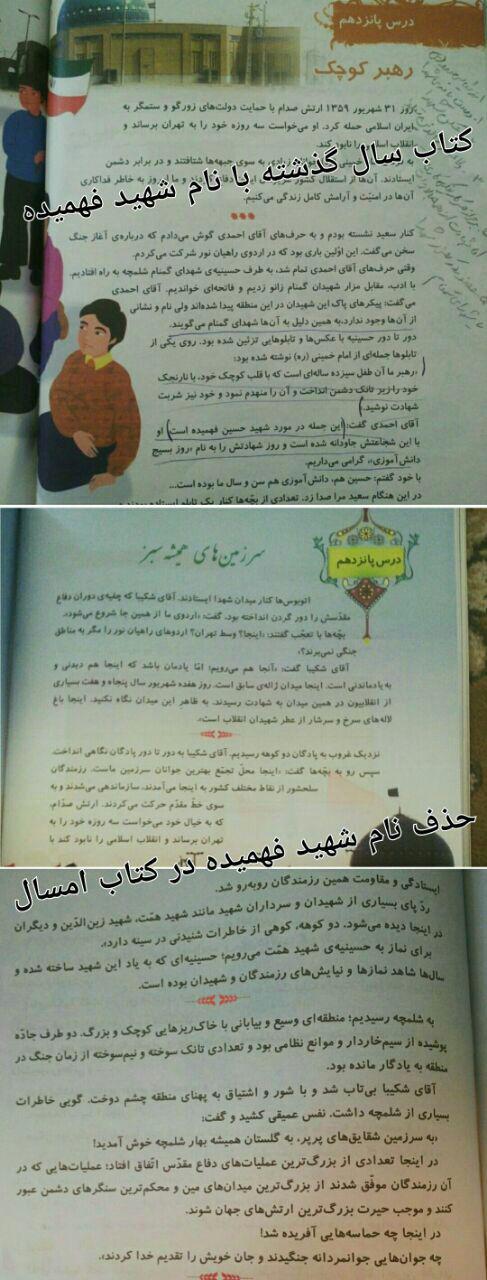 درس پانزدهم
رهبر کوچک
روز ۳۱ شهریور ۱۳۵۹ ارتش صدام با حمایت دولت‌های زورگو و ستمگر به
ایران اسلامی حمله کرد. او می‌خواست سه روزه خود را به تهران برساند و
انقلاب اسلامی را نابود کند.
کتاب سال گذشته با نام شهید فهمیده
به سوی جبهه‌ها شتافتند و در برابر دشمن
ایستادند. آن‌ها از استقلال کشور
آن‌ها در امنیّت و آرامش کامل زندگی می‌کنیم.
کنار سعید نشسته بودم و به حرف‌های آقای احمدی گوش می‌دادم که درباره‌ی آغاز جنگ
سخن می‌گفت. این اوّلین باری بود که در اردوی راهیان نور شرکت می‌کردم.
وقتی حرف‌های آقای احمدی تمام شد، به طرف حسینیه‌ی شهدای گمنام شلمچه به راه افتادیم.
با ادب، مقابل مزار شهیدان گمنام زانو زدیم و فاتحه‌ای خواندیم. آقای احمدی
می‌گفت: پیکرهای پاک این شهیدان در این منطقه پیدا شده‌اند ولی نام و نشانی
از آن‌ها وجود ندارد،به همین دلیل به آن‌ها شهدای گمنام می‌گویند.
دور تا دور حسینیه با عکس‌ها و تابلوهایی تزئین شده بود. روی یکی از
تابلوها جمله‌ای از امام خمینی (ره) نوشته شده بود:
«رهبر ما آن طفل سیزده ساله‌ای است که با قلب کوچک خود، با نارنجک
خود را زیر تانک دشمن انداخت و آن را منهدم نمود و خود نیز شربت
شهادت نوشید.»
آقای احمدی گفت: این جمله در مورد شهید حسین فهمیده است. او
با این شجاعتش جاودانه شده است و روز شهادتش را به نام «روز بسیج
دانش‌آموزی»، گرامی می‌داریم.
با خود گفتم: حسین هم، دانش‌آموزی هم سن و سال ما بوده است...
در این هنگام سعید مرا صدا زد. تعدادی از بچّه‌ها کنار یک تابلو ایستاده بودند و
درس پانزدهم
سرزمین‌های همیشه سبز
اتوبوس‌ها کنار میدان شهدا ایستادند. آقای شکیبا که چفیه‌ی دوران دفاع
مقدّسش را دور گردن انداخته بود، گفت: «اردوی ما از همین جا شروع می‌شود».
بچّه‌ها با تعجّب گفتند: «اینجا؟ وسط تهران؟ اردوهای راهیان نور را مگر به مناطق
جنگی نمی‌برند؟»
آقای شکیبا گفت: «آنجا هم می‌رویم؛ امّا یادمان باشد که اینجا هم دیدنی و
به یادماندنی است. اینجا میدان ژاله‌ی سابق است. روز هفده شهریور سال پنجاه و هفت بسیاری
از انقلابیون در همین میدان به شهادت رسیدند. به ظاهر این میدان نگاه نکنید. اینجا باغ
لاله‌های سرخ و سرشار از عطر شهیدان انقلاب است».
نزدیک غروب به پادگان دو کوهه رسیدیم. آقای شکیبا به دور تا دور پادگان نگاهی انداخت.
سپس رو به بچّه‌ها گفت: «اینجا محلّ تجمّع بهترین جوانان سرزمین ماست. رزمندگان
سلحشور از نقاط مختلف کشور به اینجا می‌آمدند، سازماندهی می‌شدند و به
سوی خطّ مقدّم حرکت می‌کردند. ارتش صدّام،
که به خیال خود می‌خواست سه روزه خود را به
تهران برساند و انقلاب اسلامی را نابود کند با
حذف نام شهید فهمیده در کتاب امسال
ایستادگی و مقاومت همین رزمندگان روبه‌رو شد.
ردّ پای بسیاری از شهیدان و سرداران شهید مانند شهید همّت، شهید زین‌الدّین و دیگران
در اینجا دیده می‌شود. دو کوهه، کوهی از خاطرات شنیدنی در سینه دارد».
برای نماز به حسینیه‌ی شهید همّت می‌رویم؛ حسینیه‌ای که به یاد این شهید ساخته شده و
سال‌ها شاهد نمازها و نیایش‌های رزمندگان و شهیدان بوده است.
به شلمچه رسیدیم؛ منطقه‌ای وسیع و بیابانی با خاک‌ریزهایی کوچک و بزرگ. دو طرف جادّه
پوشیده از سیم‌خاردار و موانع نظامی بود و تعدادی تانک سوخته و نیم‌سوخته از زمان جنگ در
منطقه به یادگار مانده بود.
آقای شکیبا بی‌تاب شد و با شور و اشتیاق به پهنای منطقه چشم دوخت. گویی خاطرات
بسیاری از شلمچه داشت. نفس عمیقی کشید و گفت:
«به سرزمین شقایق‌های پرپر، به گلستان همیشه بهار شلمچه خوش آمدید!
در اینجا تعدادی از بزرگ‌ترین عملیات‌های دفاع مقدّس اتّفاق افتاد؛ عملیات‌هایی که در
آن رزمندگان موفّق شدند از بزرگ‌ترین میدان‌های مین و محکم‌ترین سنگرهای دشمن عبور
کنند و موجب حیرت بزرگ‌ترین ارتش‌های جهان شوند.
در اینجا چه حماسه‌هایی آفریده شد!
چه جوان‌هایی جوانمردانه جنگیدند و جان خویش را تقدیم خدا کردند».